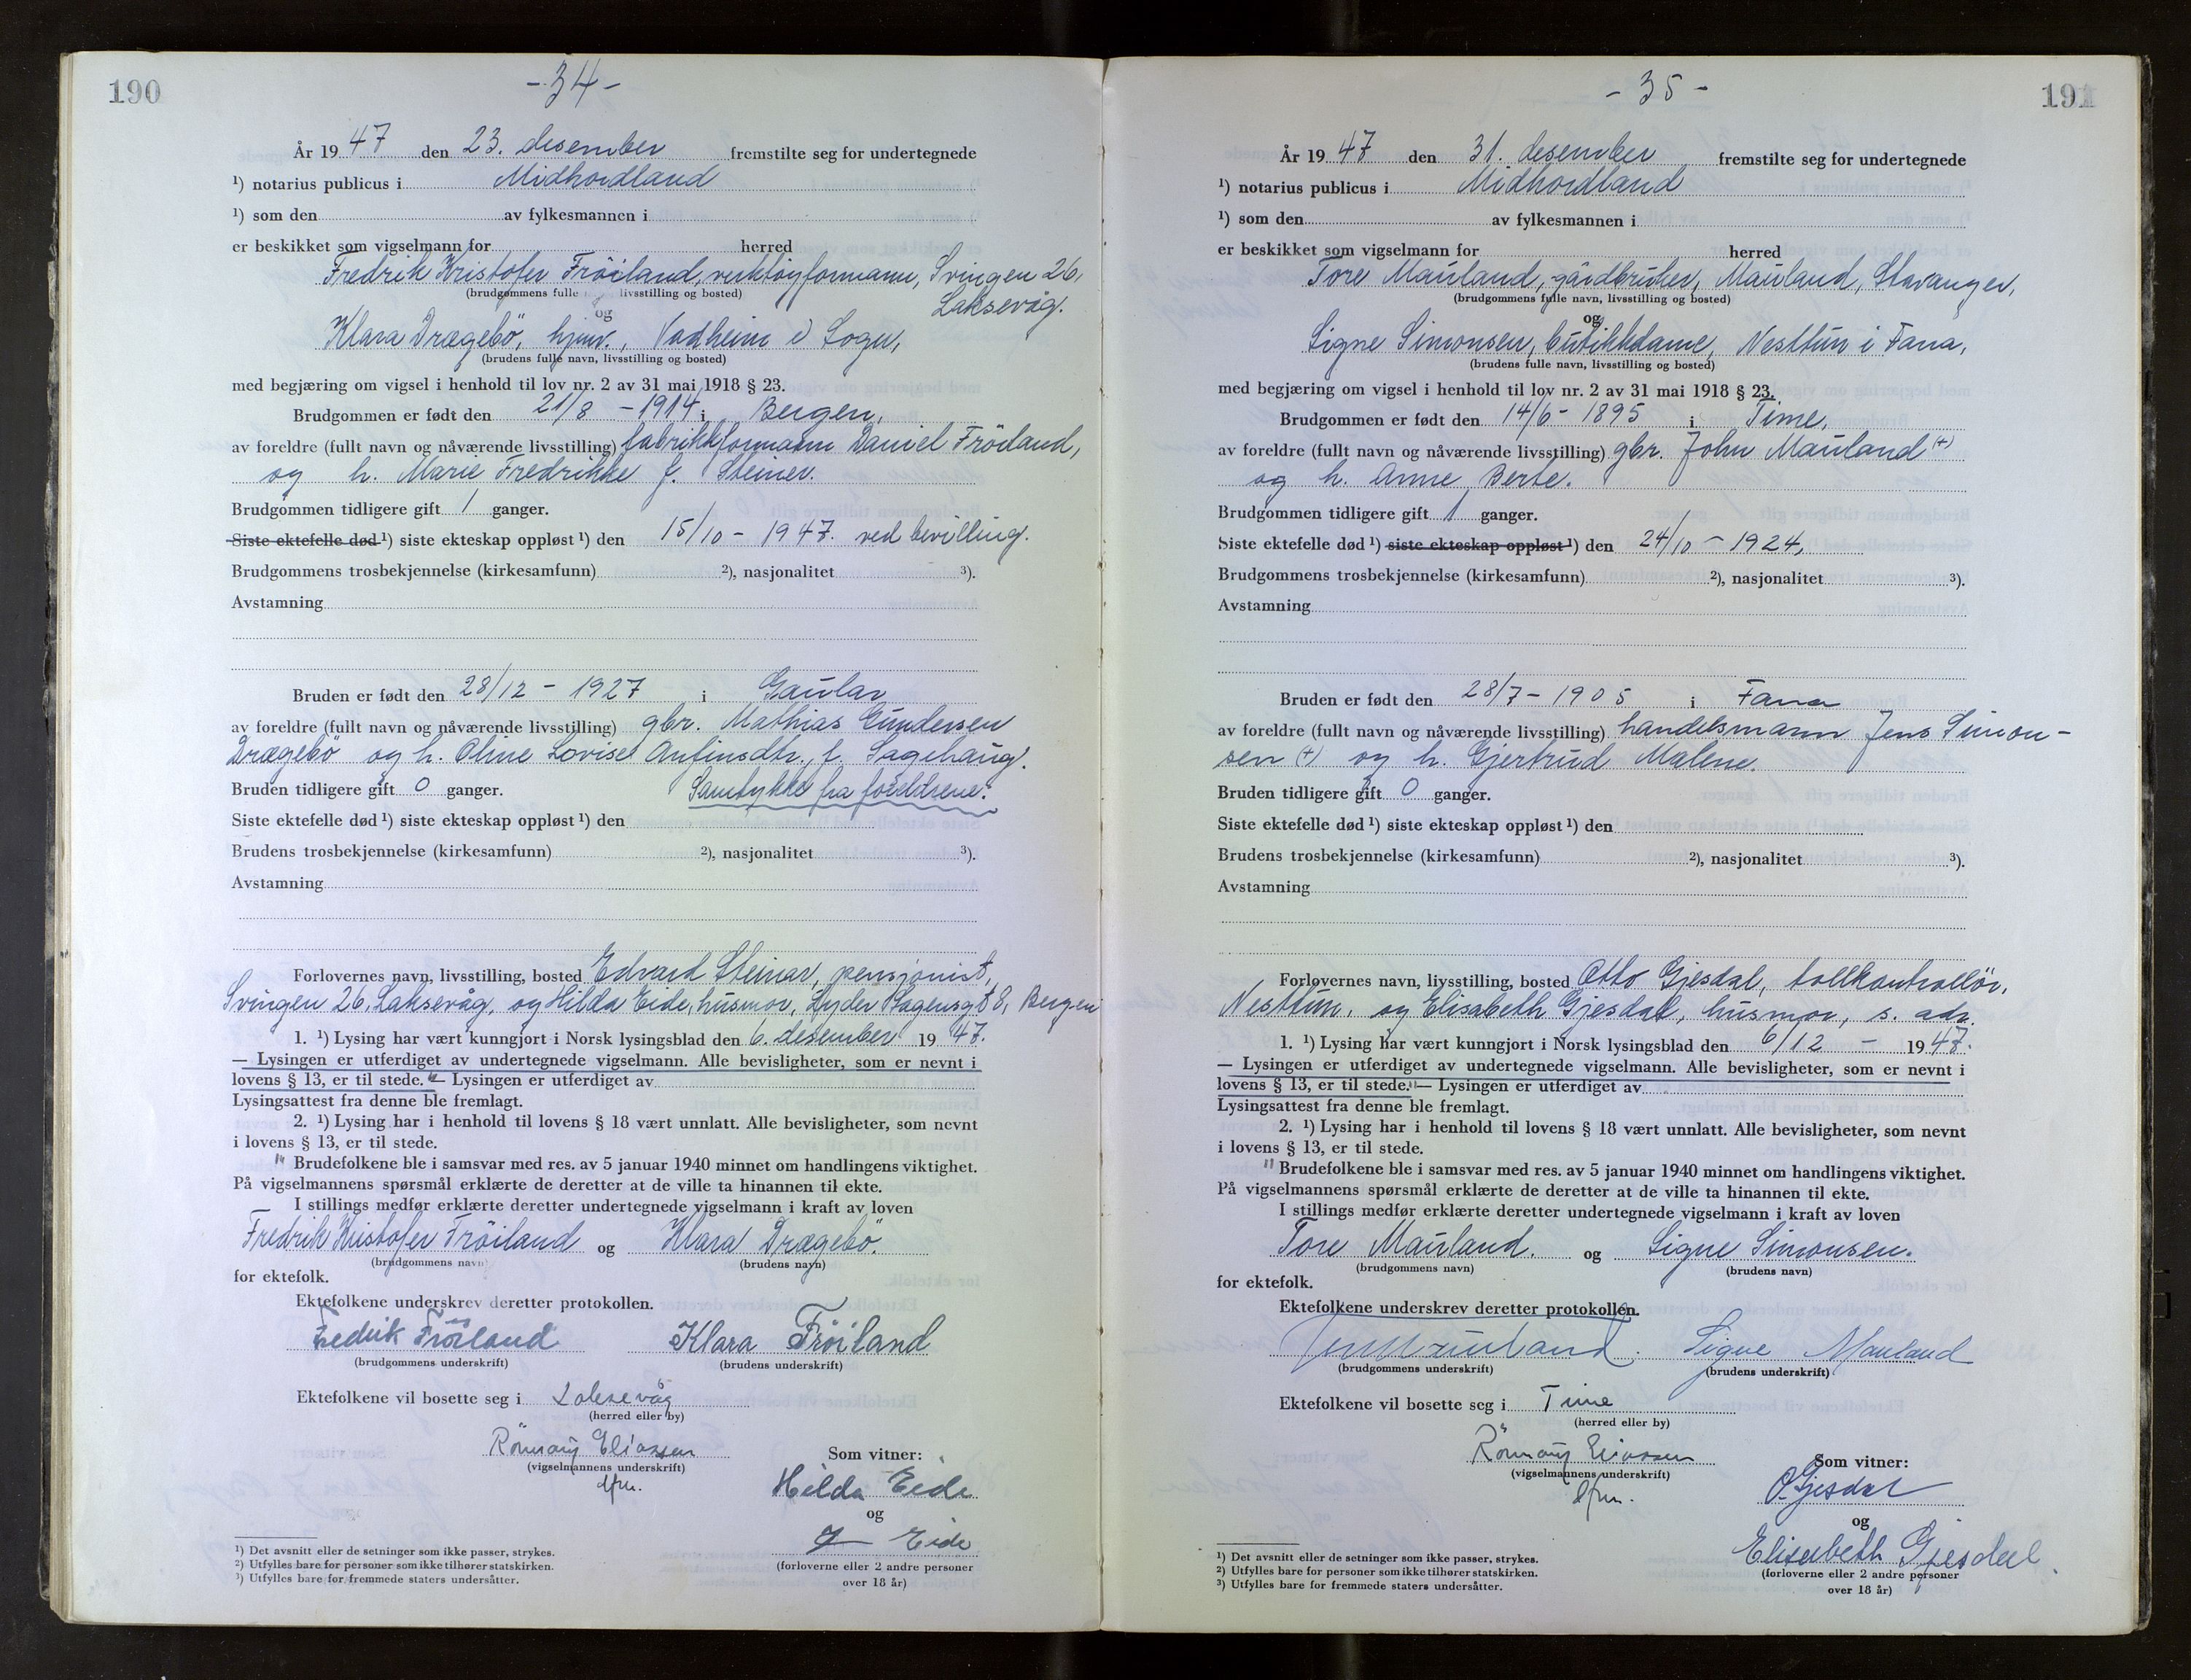 190
-34-
År 19 47 den 23. desember fremstilte seg for undertegnede
¹) notarius publicus i Midhordland
¹) som den av fylkesmannen i
er beskikket som vigselmann for herred
Fredrik Kristofer Fröiland, verktøyformann, Svingen 26,
Laksevåg.
(brudgommens fulle livsstilling og bosted)
og
Klara Drægebö, hjmv., Vadheim i Sogn,
(brudens fulle navn, livsstilling og bosted)
med begjæring om vigsel i henhold til lov nr. 2 av 31 mai 1918 § 23.
Brudgommen er født den 21/8 - 1914 i Bergen,
av foreldre (fullt navn og nåværende livsstilling) fabrikkformann Daniel Fröiland,
og h. Marie Fredrikke f. Steiner.
Brudgommen tidligere gift 1 ganger.
Siste ektefelle død ¹) siste ekteskap oppløst ¹) den 15/10 - 1947. ved bevilling.
Brudgommens trosbekjennelse (kirkesamfunn) ²), nasjonalitet ³).
Avstamning
Bruden er født den 28/12 - 1927 i Gaular
av foreldre (fullt navn og nåværende livsstilling) gbr. Mathias Gundersen
Drægebö og h. Oline Lovise Anfinsdtr., f. Sagehaug.
Bruden tidligere gift 0 ganger. Samtykke fra foreldrene.
Siste ektefelle død ¹) siste ekteskap oppløst ¹) den
Brudens trosbekjennelse (kirkesamfunn) ²), nasjonalitet ³).
Avstamning
Forlovernes navn, livsstilling, bosted Edvard Steinar, pensjonist,
Svingen 26, Laksevåg, og Hilda Eide, husmor, Lyder Sagensgt 8, Bergen
1. ¹) Lysing har vært kunngjort i Norsk lysingsblad den 6. desember 19 47.
— Lysingen er utferdiget av undertegnede vigselmann. Alle bevisligheter, som er nevnt i
lovens § 13, er til stede." — Lysingen er utferdiget av
Lysingsattest fra denne ble fremlagt.
2. ¹) Lysing har i henhold til lovens § 18 vært unnlatt. Alle bevisligheter, som nevnt
i lovens § 13, er til stede.
" Brudefolkene ble i samsvar med res. av 5 januar 1940 minnet om handlingens viktighet.
På vigselmannens spørsmål erklærte de deretter at de ville ta hinannen til ekte.
I stillings medfør erklærte deretter undertegnede vigselmann i kraft av loven
Fredrik Kristofer Fröiland og Klara Drægebö.
(brudgommens navn) (brudens navn)
for ektefolk.
Ektefolkene underskrev deretter protokollen.
Fredrik Fröiland Klara Fröiland
(brudgommens underskrift) (brudens underskrift)
Ektefolkene vil bosette seg i Laksevåg
(herred eller by)
Rönnaug Eliassen
(vigselmannens underskrift)
dfm.
Som vitner:
Hilda Eide
og
Eide
(forloverne eller 2 andre personer
over 18 år)
¹) Det avsnitt eller de setninger som ikke passer, strykes.
²) Utfylles bare for personer som ikke tilhører statskirken.
³) Utfylles bare for fremmede staters undersåtter.
191
-35-
År 19 47 den 31. desember fremstilte seg for undertegnede
¹) notarius publicus i Midhordland
¹) som den av fylkesmannen i
er beskikket som vigselmann for herred
Tore Mauland, gårdbruker, Mauland, Stavanger,
(brudgommens fulle navn, livsstilling og bosted)
og
Signe Simonsen, butikkdame, Nesttun i Fana,
(brudens fulle navn, livsstilling og bosted)
med begjæring om vigsel i henhold til lov nr. 2 av 31 mai 1918 § 23.
Brudgommen er født den 14/6 - 1895 i Time,
av foreldre (fullt navn og nåværende livsstilling) gbr. John Mauland (+)
og h. Anne Berte.
Brudgommen tidligere gift 1 ganger.
Siste ektefelle død ¹) siste ekteskap oppløst ¹) den 24/10 - 1924,
Brudgommens trosbekjennelse (kirkesamfunn) ²), nasjonalitet ³).
Avstamning
Bruden er født den 28/7 - 1905 i Fana
av foreldre (fullt navn og nåværende livsstilling) handelsmann Jens Simon-
sen (+) og h. Gjertrud Malene.
Bruden tidligere gift 0 ganger.
Siste ektefelle død ¹) siste ekteskap oppløst ¹) den
Brudens trosbekjennelse (kirkesamfunn) ²), nasjonalitet ³).
Avstamning
Forlovernes navn, livsstilling, bosted Otto Gjesdal, tollkontrollör,
Nesttun, og Elisabeth Gjesdal, husmor, s. adr.
1. ¹) Lysing har vært kunngjort i Norsk lysingsblad den 6/12 - 19 47.
— Lysingen er utferdiget av undertegnede vigselmann. Alle bevisligheter, som er nevnt i
lovens § 13, er til stede." — Lysingen er utferdiget av
Lysingsattest fra denne ble fremlagt.
2. ¹) Lysing har i henhold til lovens § 18 vært unnlatt. Alle bevisligheter, som nevnt
i lovens § 13, er til stede.
" Brudefolkene ble i samsvar med res. av 5 januar 1940 minnet om handlingens viktighet.
På vigselmannens spørsmål erklærte de deretter at de ville ta hinannen til ekte.
I stillings medfør erklærte deretter undertegnede vigselmann i kraft av loven
Tore Mauland. og Signe Simonsen.
(brudgommens navn) (brudens navn)
for ektefolk.
Ektefolkene underskrev deretter protokollen.
Tore Mauland. Signe Mauland
(brudgommens underskrift) (brudens underskrift)
Ektefolkene vil bosette seg i Time
(herred eller by)
Rönnaug Eliassen
(vigselmannens underskrift)
dfm.
Som vitner:
O. Gjesdal
og
Elisabeth Gjesdal.
(forloverne eller 2 andre personer
over 18 år)
¹) Det avsnitt eller de setninger som ikke passer, strykes.
²) Utfylles bare for personer som ikke tilhører statskirken.
³) Utfylles bare for fremmede staters undersåtter.